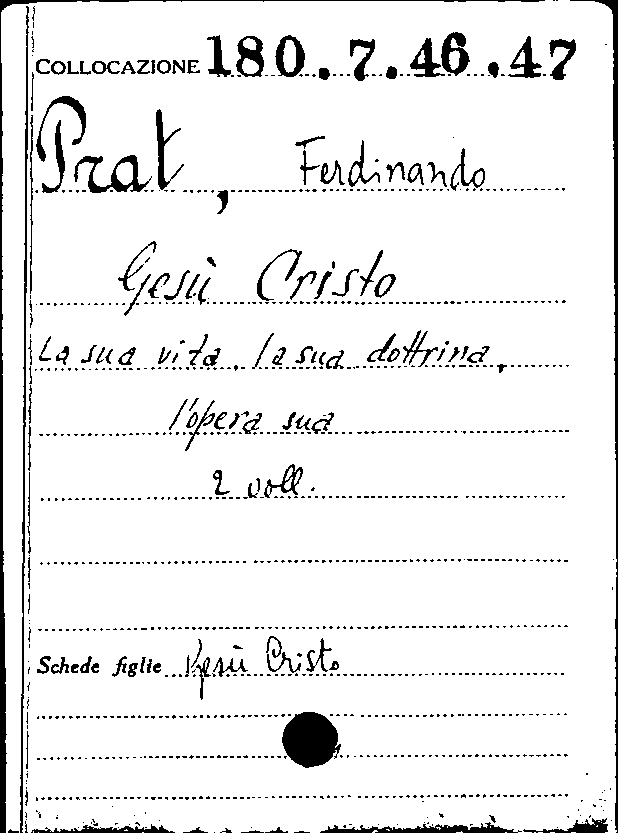 COLLOCAZIONE 180.7.46.47
Prat, Ferdinando
Gesù Cristo
La sua vita, la sua dottrina,
l'opera sua
2 voll.
Schede figlie Gesù Cristo